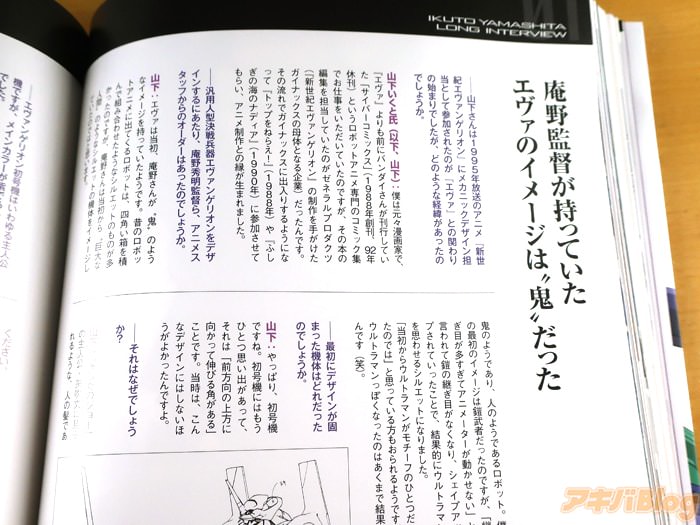 IKUTO YAMASHITA
LONG INTERVIEW
庵野監督が持っていた
エヴァのイメージは〝鬼〟だった
――山下さんは1995年放送のアニメ『新世
紀エヴァンゲリオン』にメカニックデザイン担
当として参加されたのが『エヴァ』との関わり
の始まりでしたが、どのような経緯があったの
でしょうか。
山下いくと氏(以下、山下):僕は元々漫画家で、
『エヴァ』よりも前にバンダイさんが刊行してい
た『サイバーコミックス』(1988年創刊、92年
休刊)というロボットアニメ専門のコミック集
でお仕事をいただいていたのですが、その本の
編集を担当していたのがゼネラルプロダクツ
(『新世紀エヴァンゲリオン』の制作を手がけた
ガイナックスの母体となる企業)だったんです。
その流れでガイナックスに出入りするようにな
って『トップをねらえ!』(1988年)や『ふし
ぎの海のナディア』(1990年)に参加させて
もらい、アニメ制作との縁が生まれました。
――汎用人型決戦兵器エヴァンゲリオンをデザ
インするにあたり、庵野秀明監督ら、アニメス
タッフからのオーダーはあったのでしょうか。
山下:エヴァは当初、庵野さんが〝鬼〟のよう
なイメージを持っていたようです。昔のロボッ
トアニメに出てくるロボットは、四角い箱を積
んで組み合わせたようなシルエットのものが多
かったのですが、庵野さんは当初から〝巨大な
人間〟のようなシルエットの機体をイメージし
鬼のようであり、人のようであるロボット。僕
の最初のイメージは鎧武者だったのですが、「継
ぎ目が多すぎてアニメーターが動かせない」と
言われて鎧の継ぎ目がなくなり、シェイプア
プされていったことで、結果的にウルトラマン
を思わせるシルエットになりました。
「当初からウルトラマンがモチーフのひとつだっ
たのでは」と思っている方もおられるようです
ウルトラマンっぽくなったのはあくまで結果
んです(笑)。
――最初にデザインが固
まった機体はどれだった
のでしょうか。
山下:やっぱり、初号機
ですね。初号機にはもう
ひとつ思い出があって、
それは「前方向の上方に
向かって伸びる角がある」
ことです。当時は、こん
なデザインにはしないほ
うがよかったんですよ。
――それはなぜでしょう
か?
――エヴァンゲリオン初号機はいわゆる主人公
機ですが、メインカラーが
アキバBlog